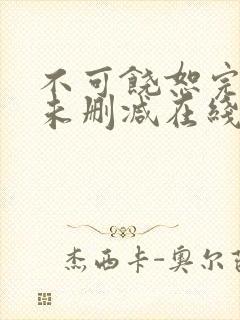 不可饶恕完
未删减在线
杰西卡-奥尔芭